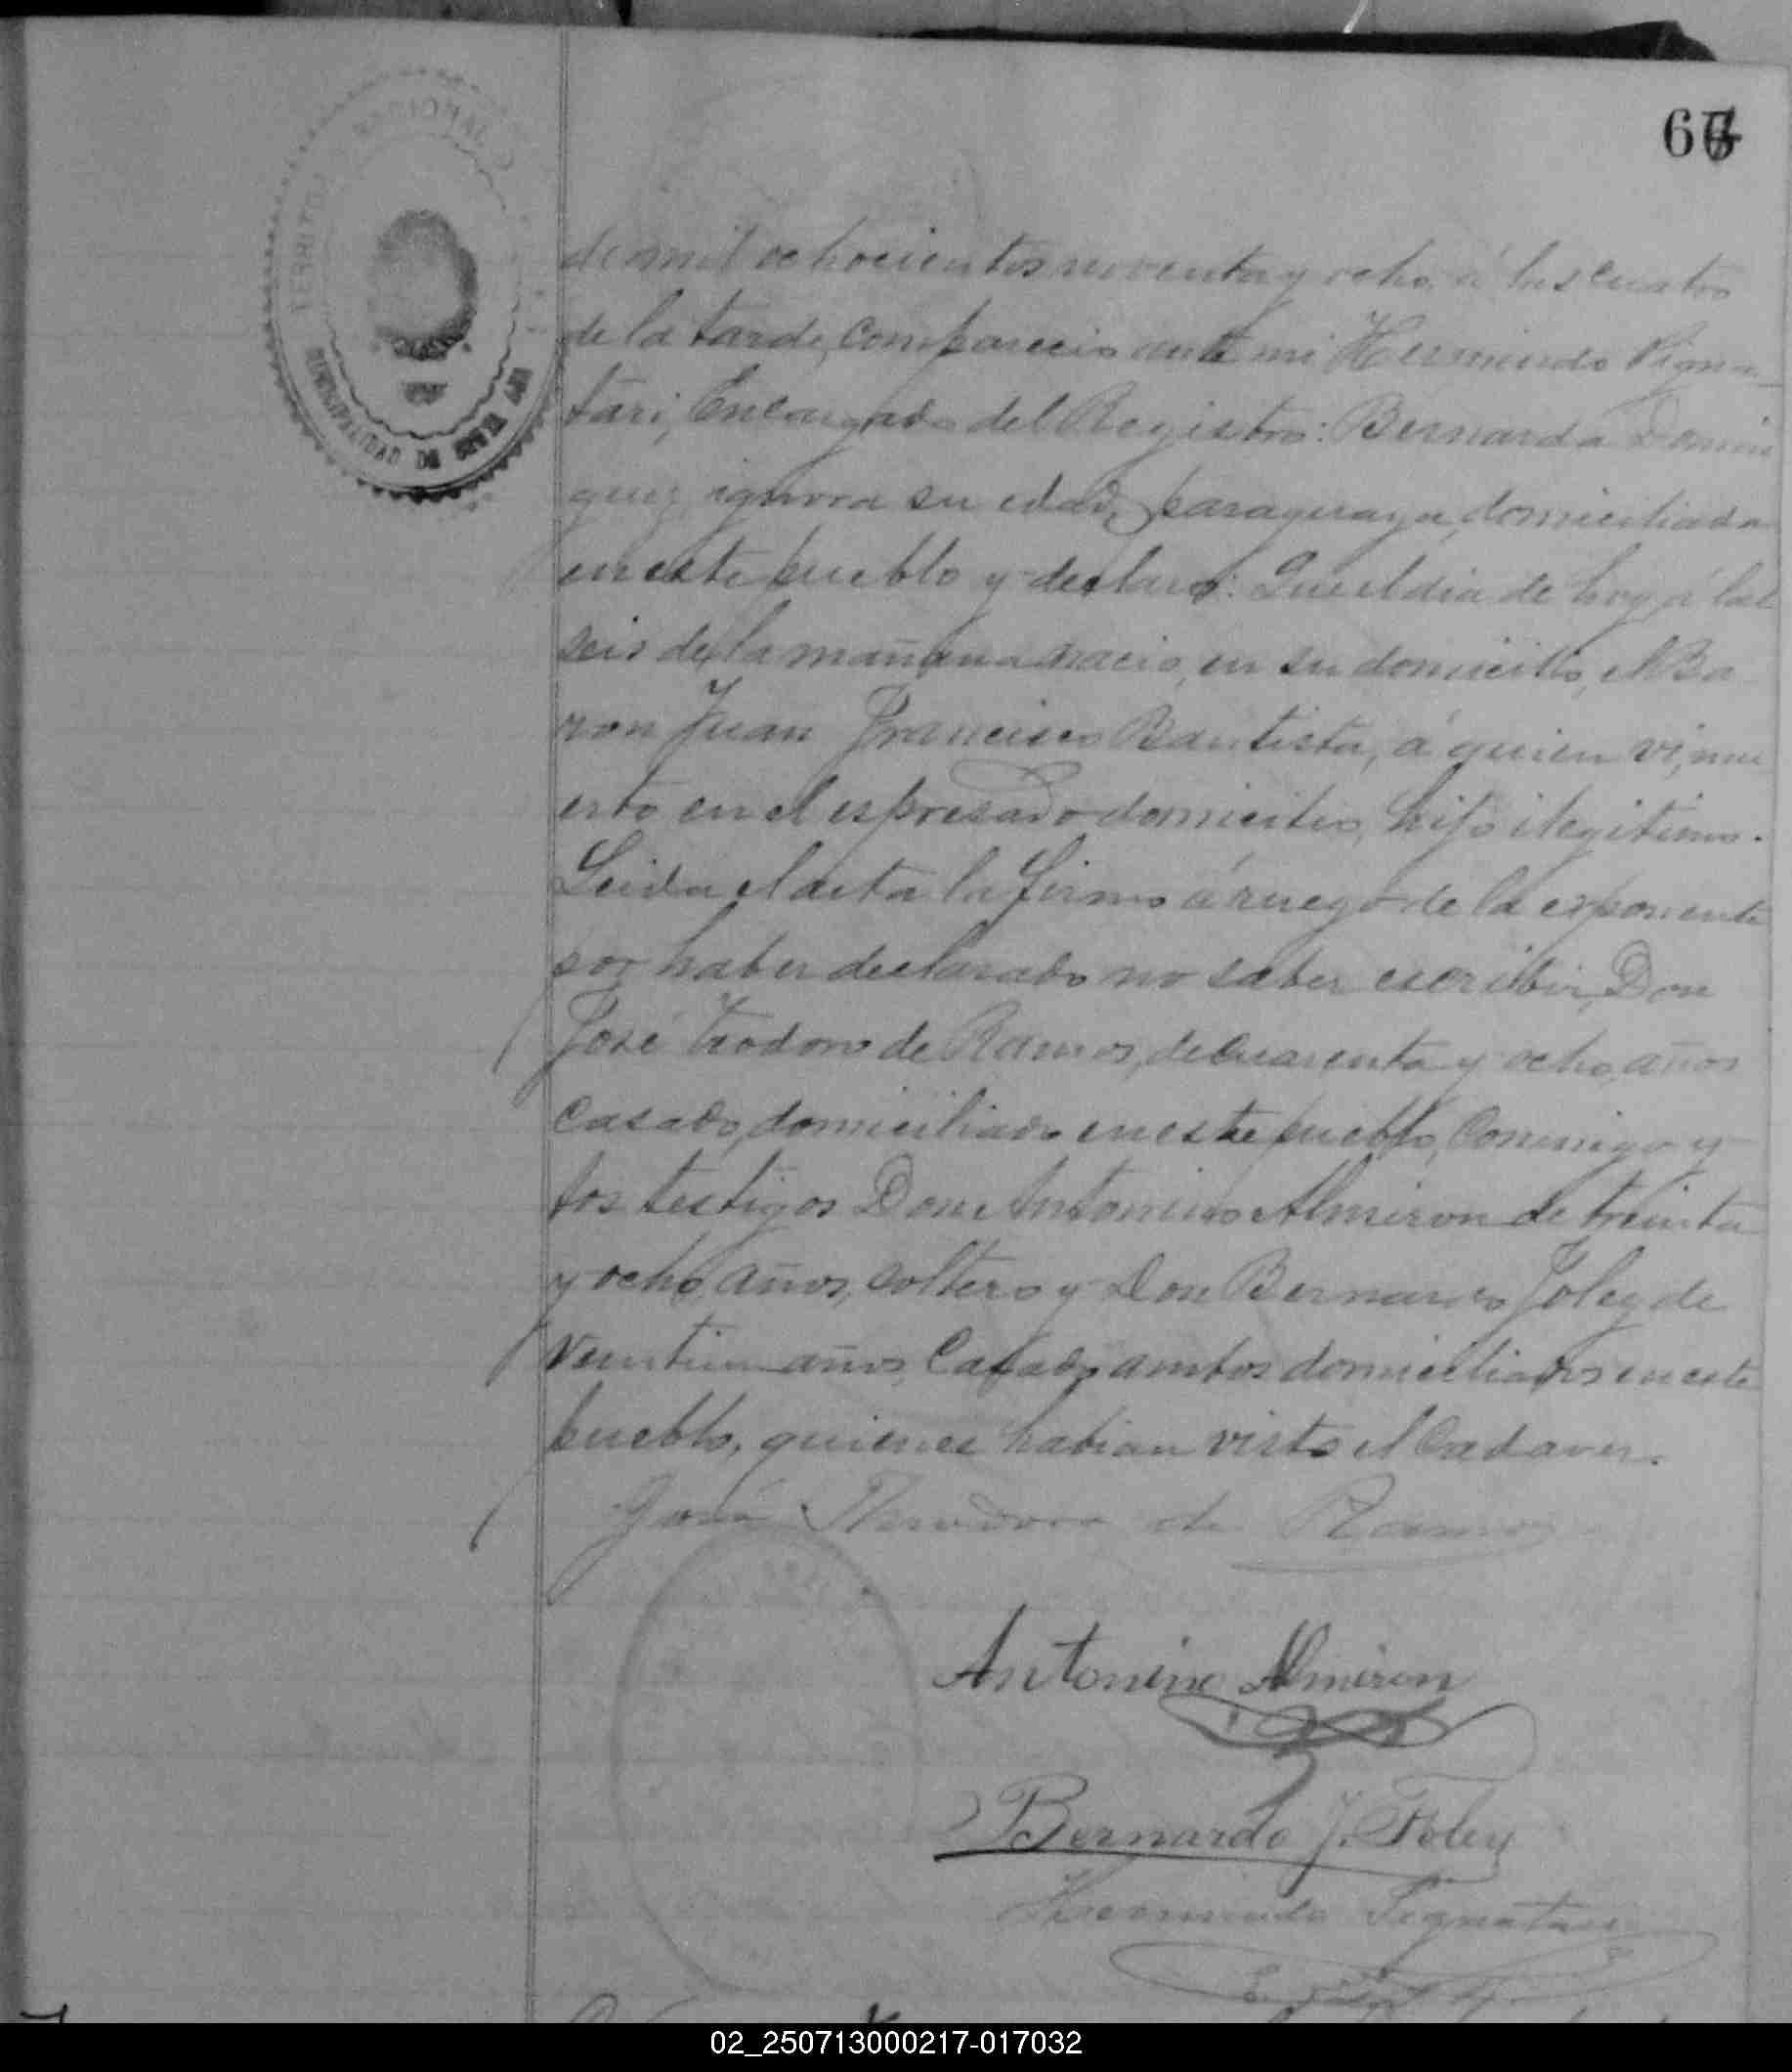 66
TERRITORIO NACIONAL
MUNICIPALIDAD DE
de mil ochocientos noventa y ocho, á las cuatro
de la tarde, comparecio ante mi Hermindo Pigna-
tari, Encargado del Registro: Bernarda Domin
guez ignora su edad, paraguaya, domiciliada
en este pueblo y declaró: Que el dia de hoy á las
seis de la mañana nacio, en su domicilio, el Ba
ron Juan Francisco Bautista, á quien vi, mu
erto en el espresado domicilio, hijo ilegitimo.
Leida el acta la firmo á ruego de la esponente
por haber declarado no saber escribir, Don
José Teodoro de Ramos, de cuarenta y ocho años
casado, domiciliado en este pueblo, conmigo y
los testigos Don Antonino Almiron de treinta
y ocho años, soltero y Don Bernardo Foley de
veintiun años, Casado, ambos domiciliados en este
pueblo, quienes habian visto el Cadaver.
José Theodoro de Ramos
Antonino Almiron
Bernardo J. Foley
Hermindo Pignatari
02_250713000217-017032